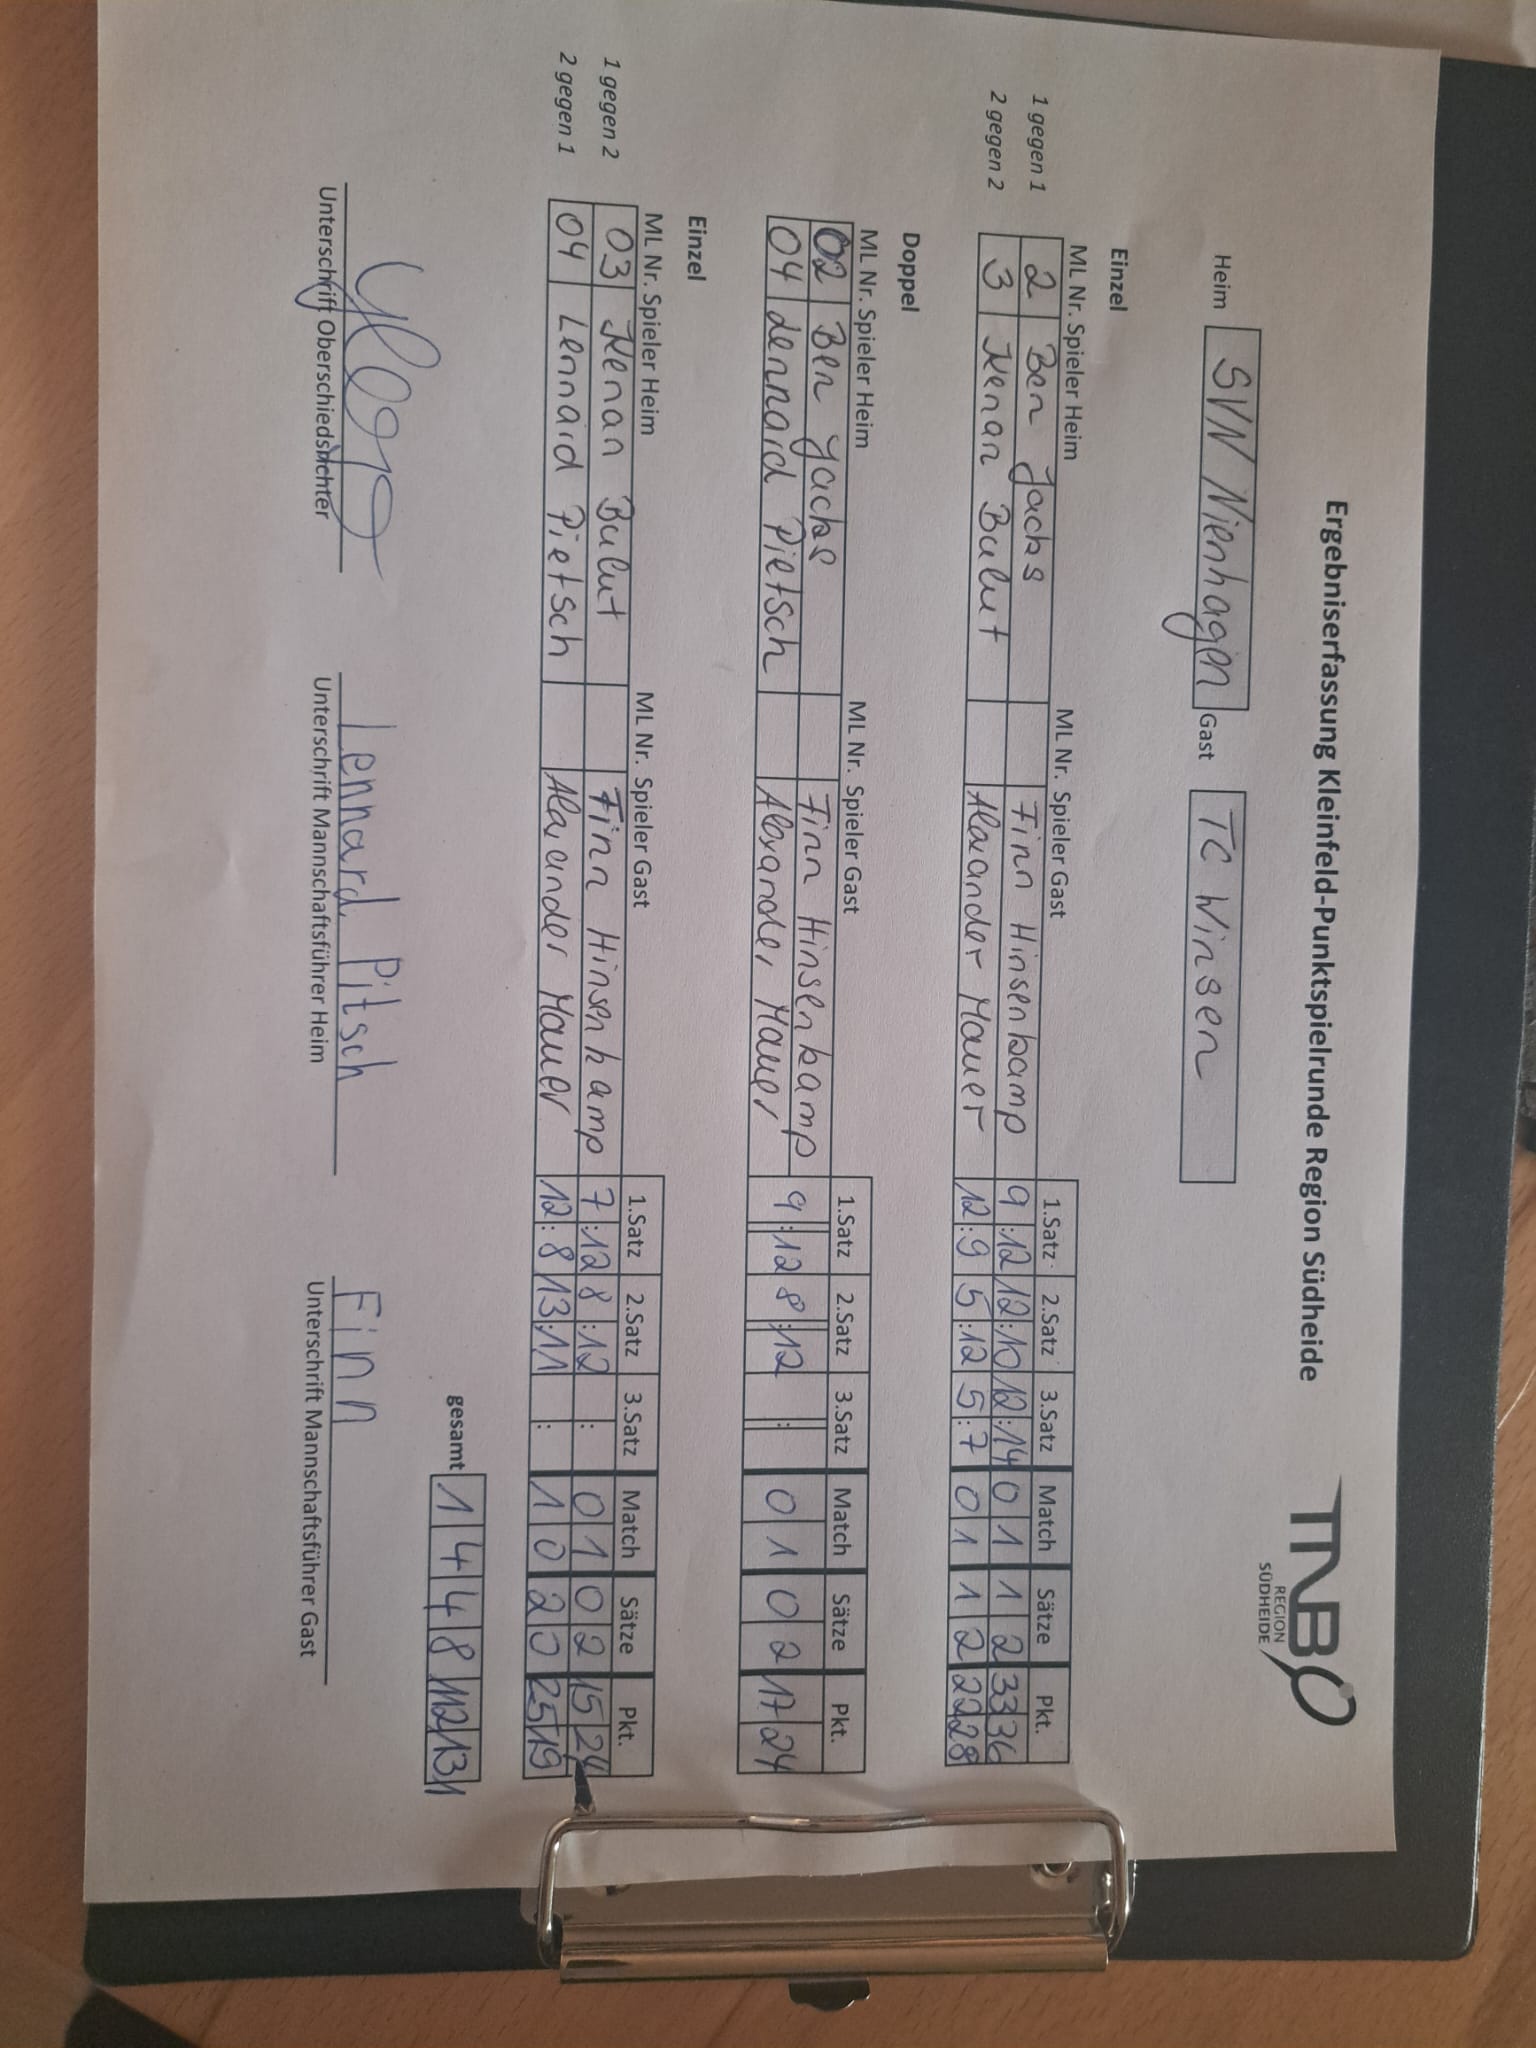 Ergebniserfassung Kleinfeld-Punktspielrunde Region Südheide
TNB
REGION
SÜDHEIDE
Heim SVN Nienhagen Gast TC Winsen
Einzel
ML Nr. Spieler Heim ML Nr. Spieler Gast 1.Satz 2.Satz 3.Satz Match Sätze Pkt.
1 gegen 1 2 Ben Jacks Finn Hinsenkamp 9:12 12:10 12:14 0 1 1 2 33 36
2 gegen 2 3 Kenan Bulut Alexander Mauer 12:9 5:12 5:7 0 1 1 2 22 28
Doppel
ML Nr. Spieler Heim ML Nr. Spieler Gast 1.Satz 2.Satz 3.Satz Match Sätze Pkt.
02 Ben Jacks Finn Hinsenkamp 9:12 8:12 : 0 1 0 2 17 24
04 Lennard Pietsch Alexander Mauer
Einzel
ML Nr. Spieler Heim ML Nr. Spieler Gast 1.Satz 2.Satz 3.Satz Match Sätze Pkt.
1 gegen 2 03 Kenan Bulut Finn Hinsenkamp 7:12 8:12 : 0 1 0 2 15 24
2 gegen 1 04 Lennard Pietsch Alexander Mauer 12:8 13:11 : 1 0 2 0 25 19
gesamt 1 4 4 8 112 131
Lennard Pitsch Finn
Unterschrift Oberschiedsrichter Unterschrift Mannschaftsführer Heim Unterschrift Mannschaftsführer Gast